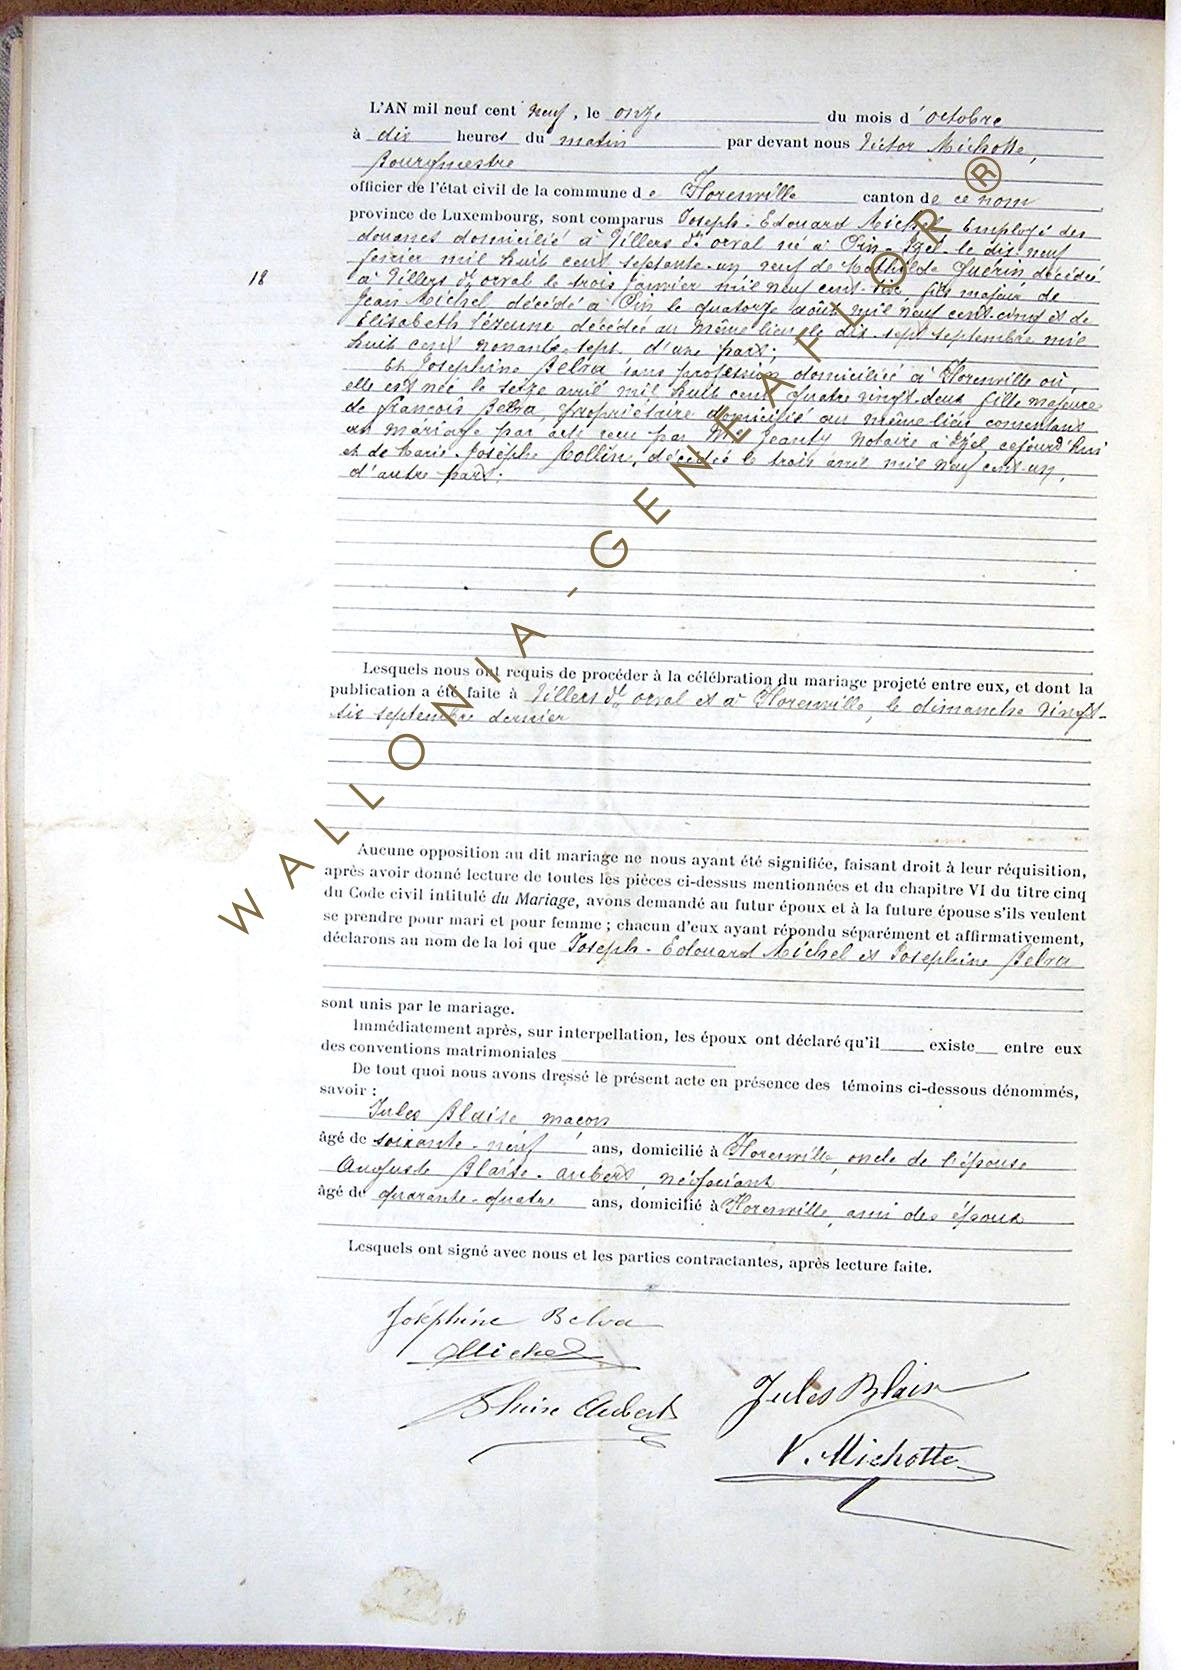 L'AN mil neuf cent neuf, le onze du mois d'octobre
à dix heures du matin par devant nous Victor Michotte,
Bourgmestre
officier de l'état civil de la commune de Florenville canton de ce nom
province de Luxembourg, sont comparus Joseph-Edouard Michel Employé des
douanes domicilié à Villers dt orval né à Pin-Izel le dix neuf
février mil huit cent septante-un veuf de Mathilde Guérin décédée
18
à Villers dt orval le trois janvier mil neuf cent-six, fils majeur de
Jean Michel, décédé à Pin le quatorze août mil neuf cent-cinq et de
Elisabeth décédée au même lieu le dix-sept septembre mil
huit cent nonante-sept. d'une part;
Et Josephine Belva sans profession domiciliée à Florenville où
elle est née le seize avril mil huit cent quatre vingt-deux fille majeure
de françois Belva, propriétaire domicilié au même lieu consentant
au mariage par acte reçu par Me Jeanty Notaire à Izel, cejourd'hui
et de Marie-Josèphe Collin, décédée le trois avril mil neuf cent-un,
d'autre part;
Lesquels nous ont requis de procéder à la célébration du mariage projeté entre eux, et dont la
publication a été faite à Villers dt orval et à Florenville, le dimanche vingt-
six septembre dernier
Aucune opposition au dit mariage ne nous ayant été signifiée, faisant droit à leur réquisition,
après avoir donné lecture de toutes les pièces ci-dessus mentionnées et du chapitre VI du titre cinq
du Code civil intitulé du Mariage, avons demandé au futur époux et à la future épouse s'ils veulent
se prendre pour mari et pour femme ; chacun d'eux ayant répondu séparément et affirmativement,
déclarons au nom de la loi que Joseph-Edouard Michel et Josephine Belva
sont unis par le mariage.
Immédiatement après, sur interpellation, les époux ont déclaré qu'il existe entre eux
des conventions matrimoniales
De tout quoi nous avons dressé le présent acte en présence des témoins ci-dessous dénommés,
savoir :
Jules Blaise maçon
âgé de soixante-neuf ans, domicilié à Florenville, oncle de l'épouse
Auguste Blaise-aubert, négociant
âgé de quarante-quatre ans, domicilié à Florenville, ami des époux
Lesquels ont signé avec nous et les parties contractantes, après lecture faite.
Joséphine Belva
Michel
Blaise Aubert
Jules Blaise
V. Michotte
WALLONIA-GENEAFLOR®